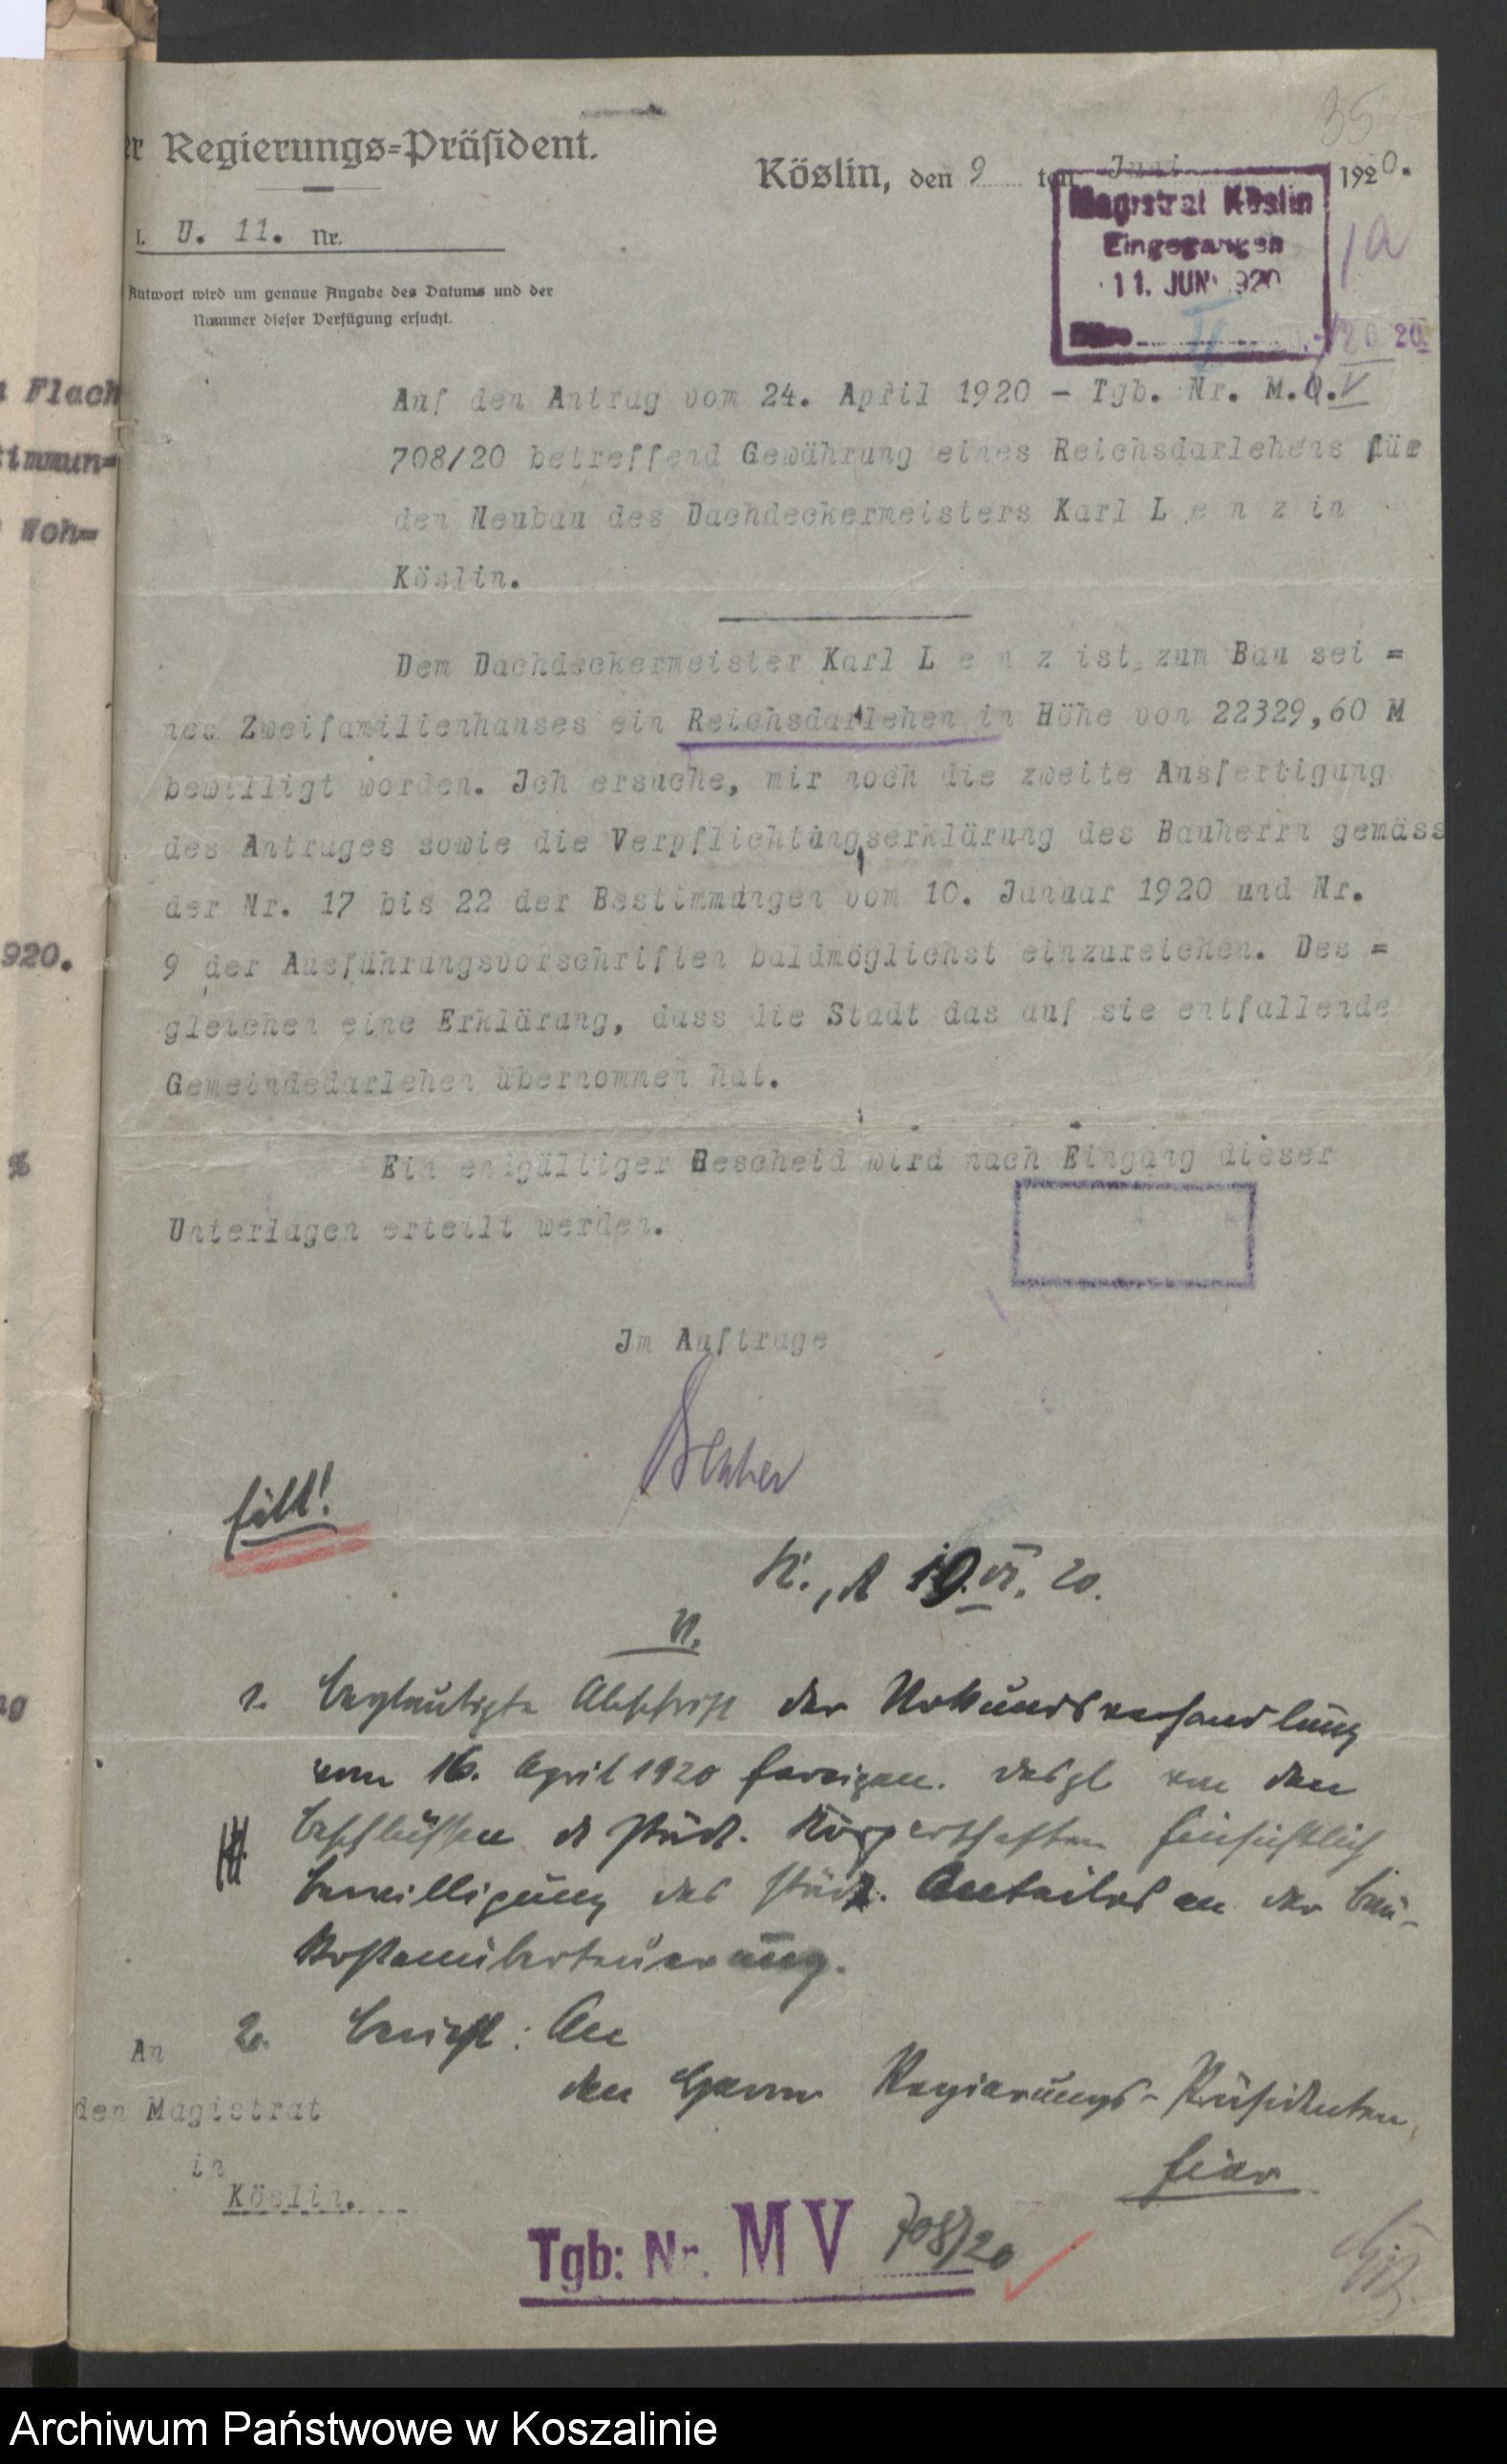 35
er Regierungs=Präsident.
Köslin, den 9 ten Juni 1920.
I. U. 11. Nr.
Antwort wird um genaue Angabe des Datums und der
Nummer dieser Verfügung ersucht.
Magistrat Köslin
Eingegangen
11. JUNI 1920
Auf den Antrag vom 24. April 1920 - Tgb. Nr. M.V
708/20 betreffend Gewährung eines Reichsdarlehens für
den Neubau des Dachdeckermeisters Karl L e n z in
Köslin.
Dem Dachdeckermeister Karl L e n z ist zum Bau sei =
nes Zweifamilienhauses ein Reichsdarlehen in Höhe von 22329,60 M
bewilligt worden. Ich ersuche, mir noch die zweite Ausfertigung
des Antrages sowie die Verpflichtungserklärung des Bauherrn gemäss
der Nr. 17 bis 22 der Bestimmungen vom 10. Januar 1920 und Nr.
9 der Ausführungsvorschriften baldmöglichst einzureichen. Des =
gleichen eine Erklärung, dass die Stadt das auf sie entfallende
Gemeindedarlehen übernommen hat.
Ein endgültiger Bescheid wird nach Eingang dieser
Unterlagen erteilt werden.
Im Auftrage
K., d 10.VI. 20.
V.
1. Beglaubigte Abschrift der Urkundsverhandlung
vom 16. April 1920 fertigen. Desgl von den
Beschlüssen d städt. Körperschaften hinsichtlich
Bewilligung des städt. Anteiles an der Bau-
kostenüberteuerung.
2. Bericht: An
den Herrn Regierungs-Präsidenten,
hier
An
den Magistrat
in
Köslin.
Tgb: Nr. M V 708/20
Flach
timmun=
Woh=
920.
%
ng
Archiwum Państwowe w Koszalinie